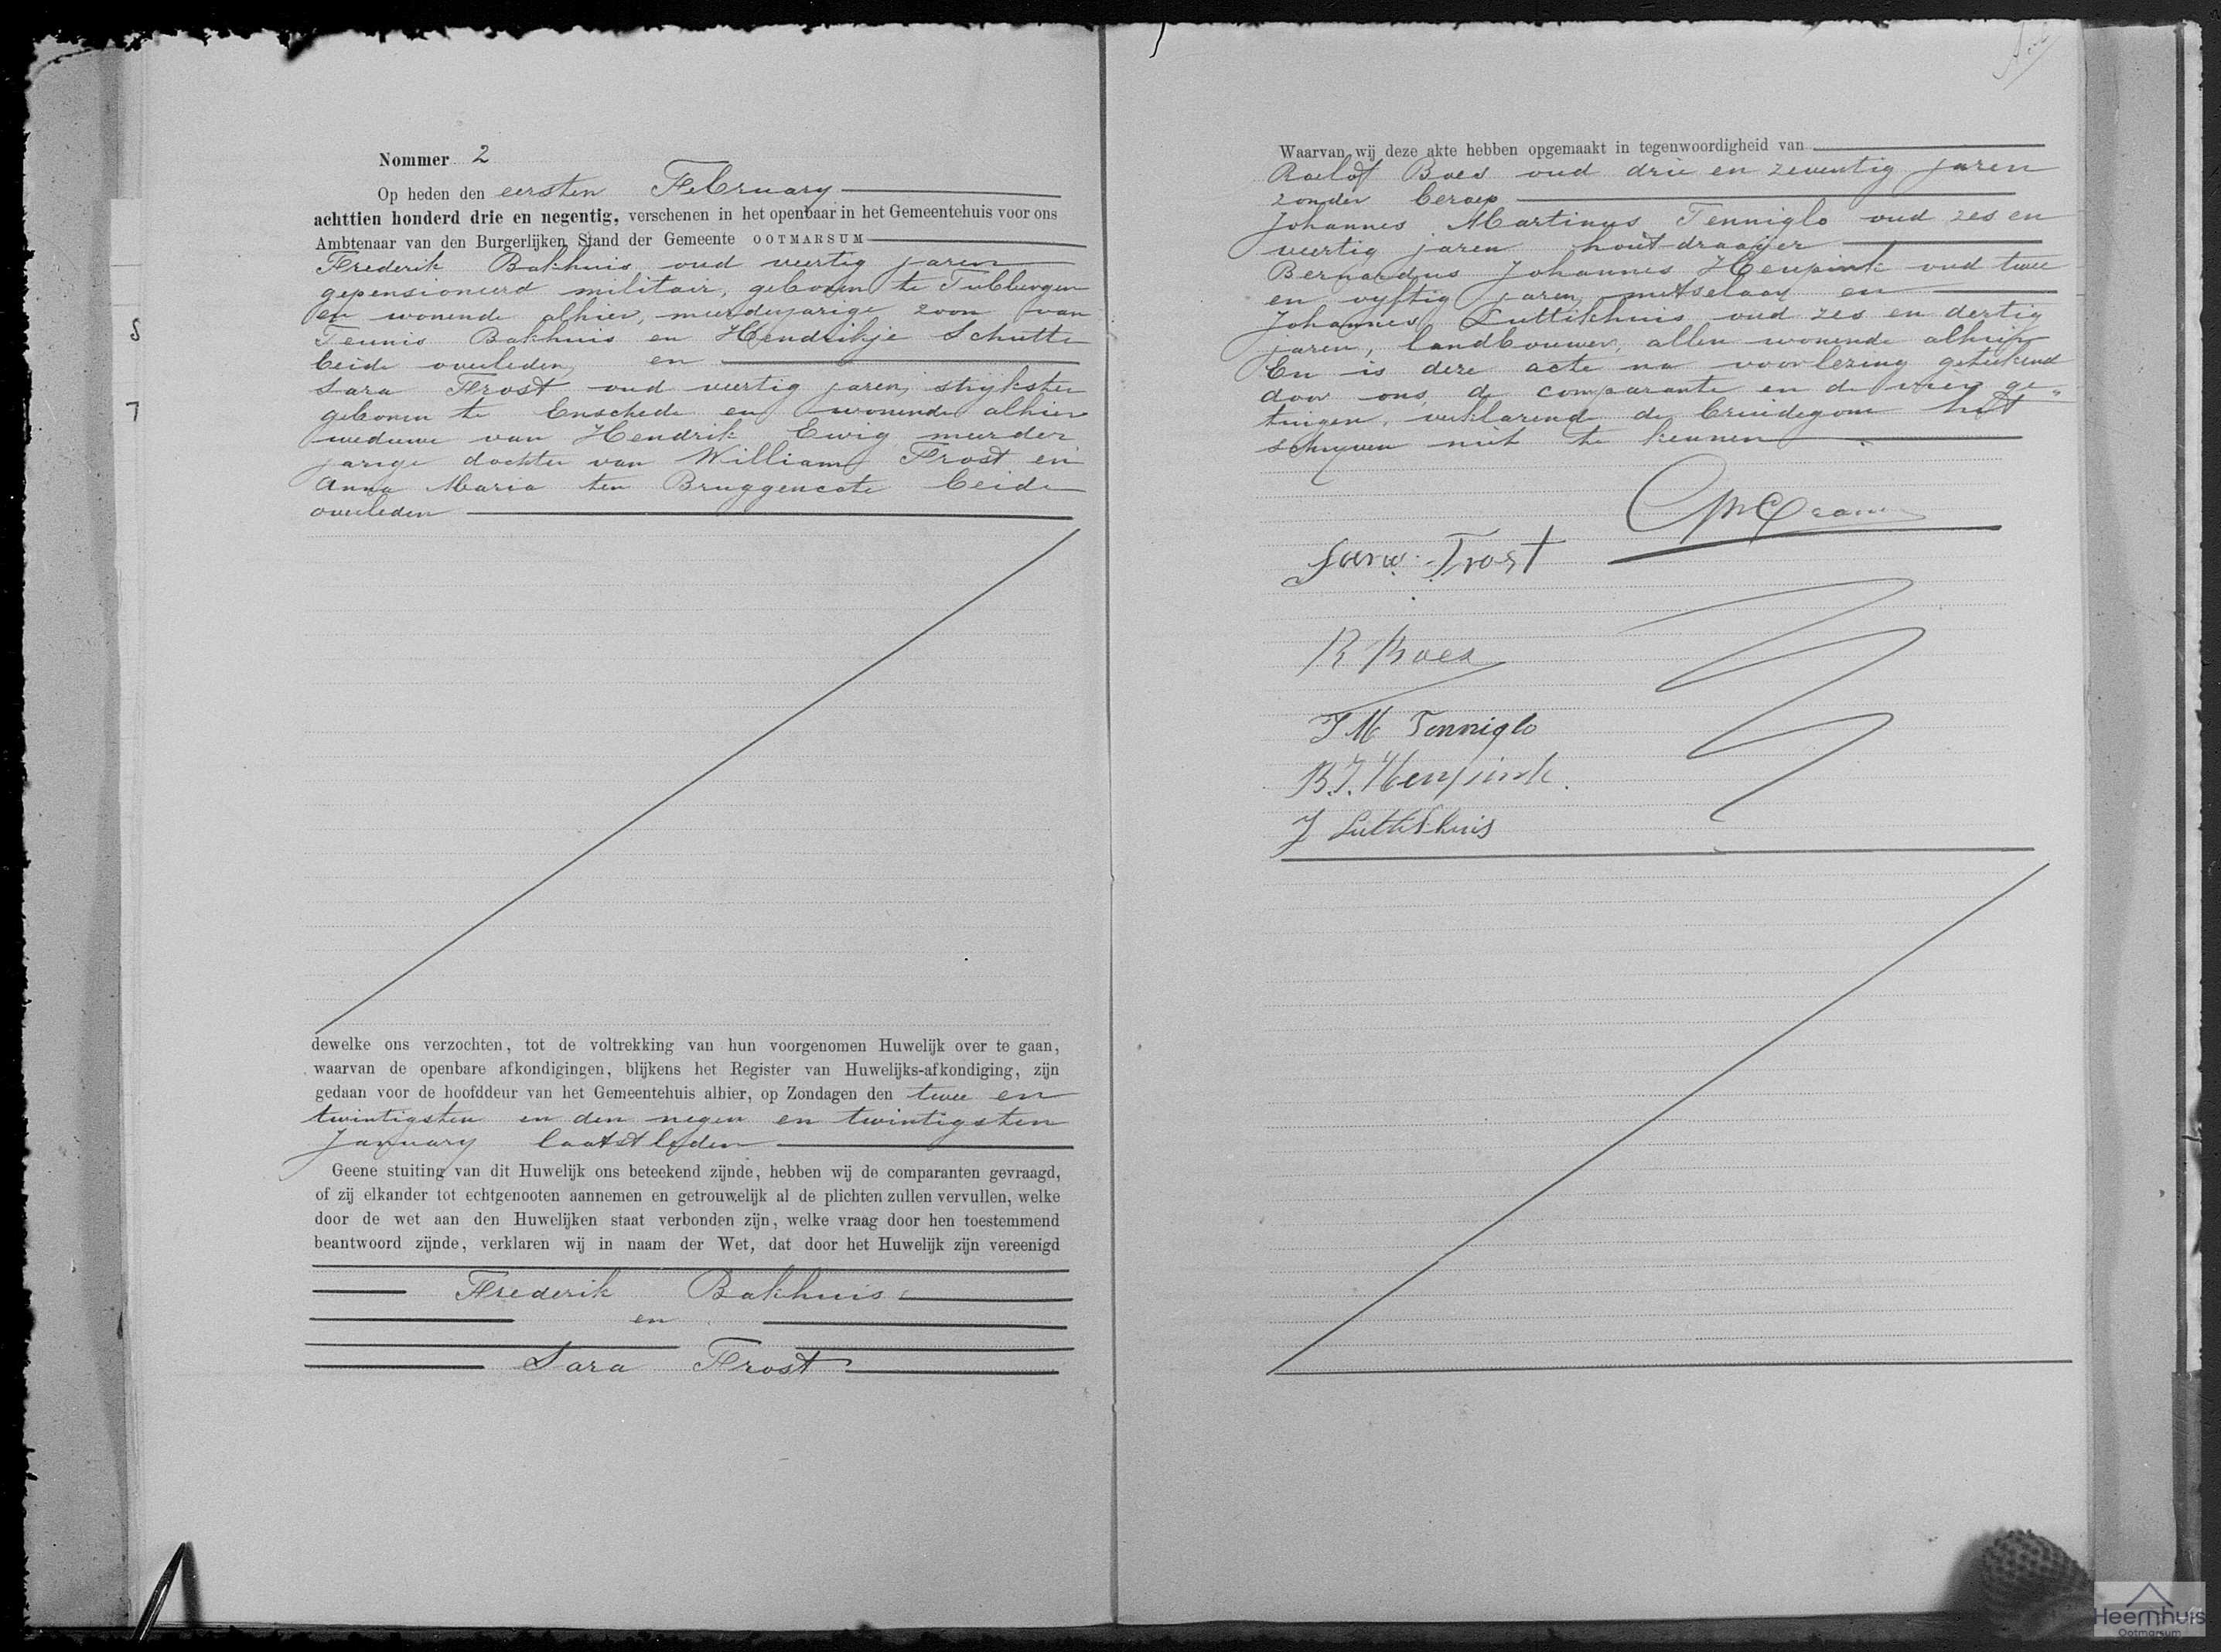 Nommer 2
Op heden den eersten February
achttien honderd drie en negentig, verschenen in het openbaar in het Gemeentehuis voor ons
Ambtenaar van den Burgerlijken Stand der Gemeente OOTMARSUM
Frederik Bakhuis oud veertig jaren
gepensioneerd militair, geboren te Tubbergen
en wonende alhier, meerderjarige zoon van
Teunis Bakhuis en Hendrikje Schutte
beide overleden, en
Sara Frost oud veertig jaren, strijkster
geboren te Enschede en wonende alhier
weduwe van Hendrik Ewig meerder
jarige dochter van William Frost en
Anna Maria ten Bruggencate beide
overleden
dewelke ons verzochten, tot de voltrekking van hun voorgenomen Huwelijk over te gaan,
waarvan de openbare afkondigingen, blijkens het Register van Huwelijks-afkondiging, zijn
gedaan voor de hoofddeur van het Gemeentehuis alhier, op Zondagen den twee en
twintigsten en den negen en twintigsten
January laatstleden
Geene stuiting van dit Huwelijk ons beteekend zijnde, hebben wij de comparanten gevraagd,
of zij elkander tot echtgenooten aannemen en getrouwelijk al de plichten zullen vervullen, welke
door de wet aan den Huwelijken staat verbonden zijn, welke vraag door hen toestemmend
beantwoord zijnde, verklaren wij in naam der Wet, dat door het Huwelijk zijn vereenigd
Frederik Bakhuis
en
Sara Frost
Waarvan wij deze akte hebben opgemaakt in tegenwoordigheid van
Roelof Boes oud drie en zeventig jaren
zonder beroep
Johannes Martinus Tenniglo oud zes en
veertig jaren houtdraaijer
Bernardus Johannes Heupink oud twee
en vyftig jaren, metselaar en
Johannes Luttikhuis oud zes en dertig
jaren, landbouwer, allen wonende alhier
En is deze acte na voorlezing geteekend
door ons, de comparante en de vier ge-
tuigen, verklarend de bruidegom het
schryven niet te kennen
Sara Frost
R Boes
J M Tenniglo
B.J. Heupink.
J Luttikhuis
S
T
Heemhuis
Ootmarsum